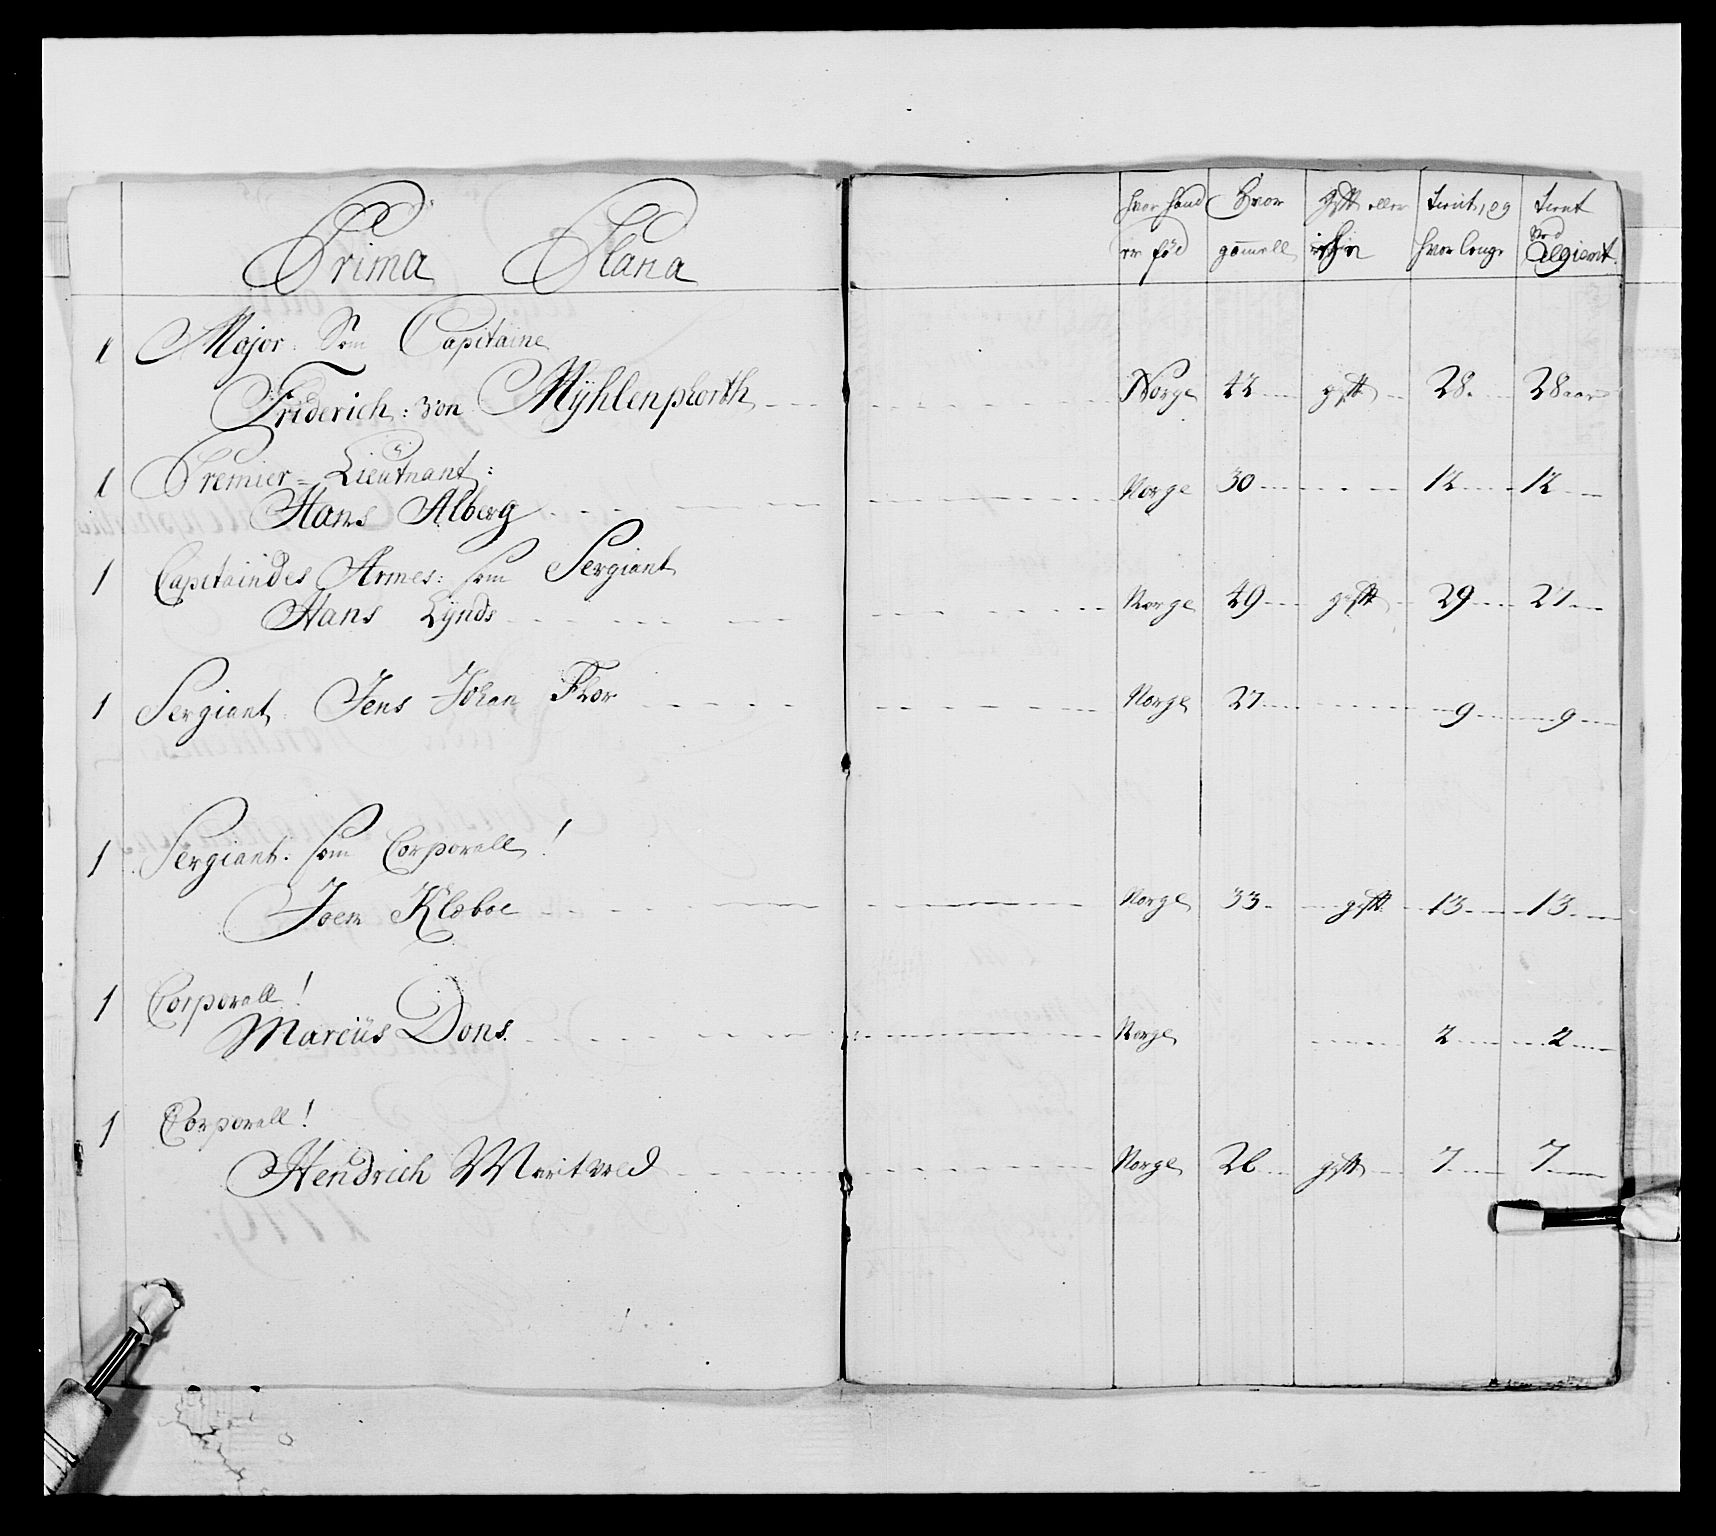 Prima Plana
hvor hand Hvor Gift eller tient, og tient
er föd gammell hvor lenge Ved Regiemt.
1 Major: Som Capitaine
Friderich: von Mÿhlenphorth Norge 42 gift 28 28 aar
1 Premier-Lieutnant:
Hans Alberg Norge 30 12 12
1 Capitaindes Armes: som Sergiant
Hans Lÿnds Norge 49 gift 29 27
1 Sergiant: Jens Johan Flor Norge 27 9 9
1 Sergiant: som Corporall!
Joen Kleboe Norge 33 gift 13 13
1 Corporall!
Marcüs Dons. Norge 2 2
1 Corporall!
Hendrich Norge 26 gift 7 7